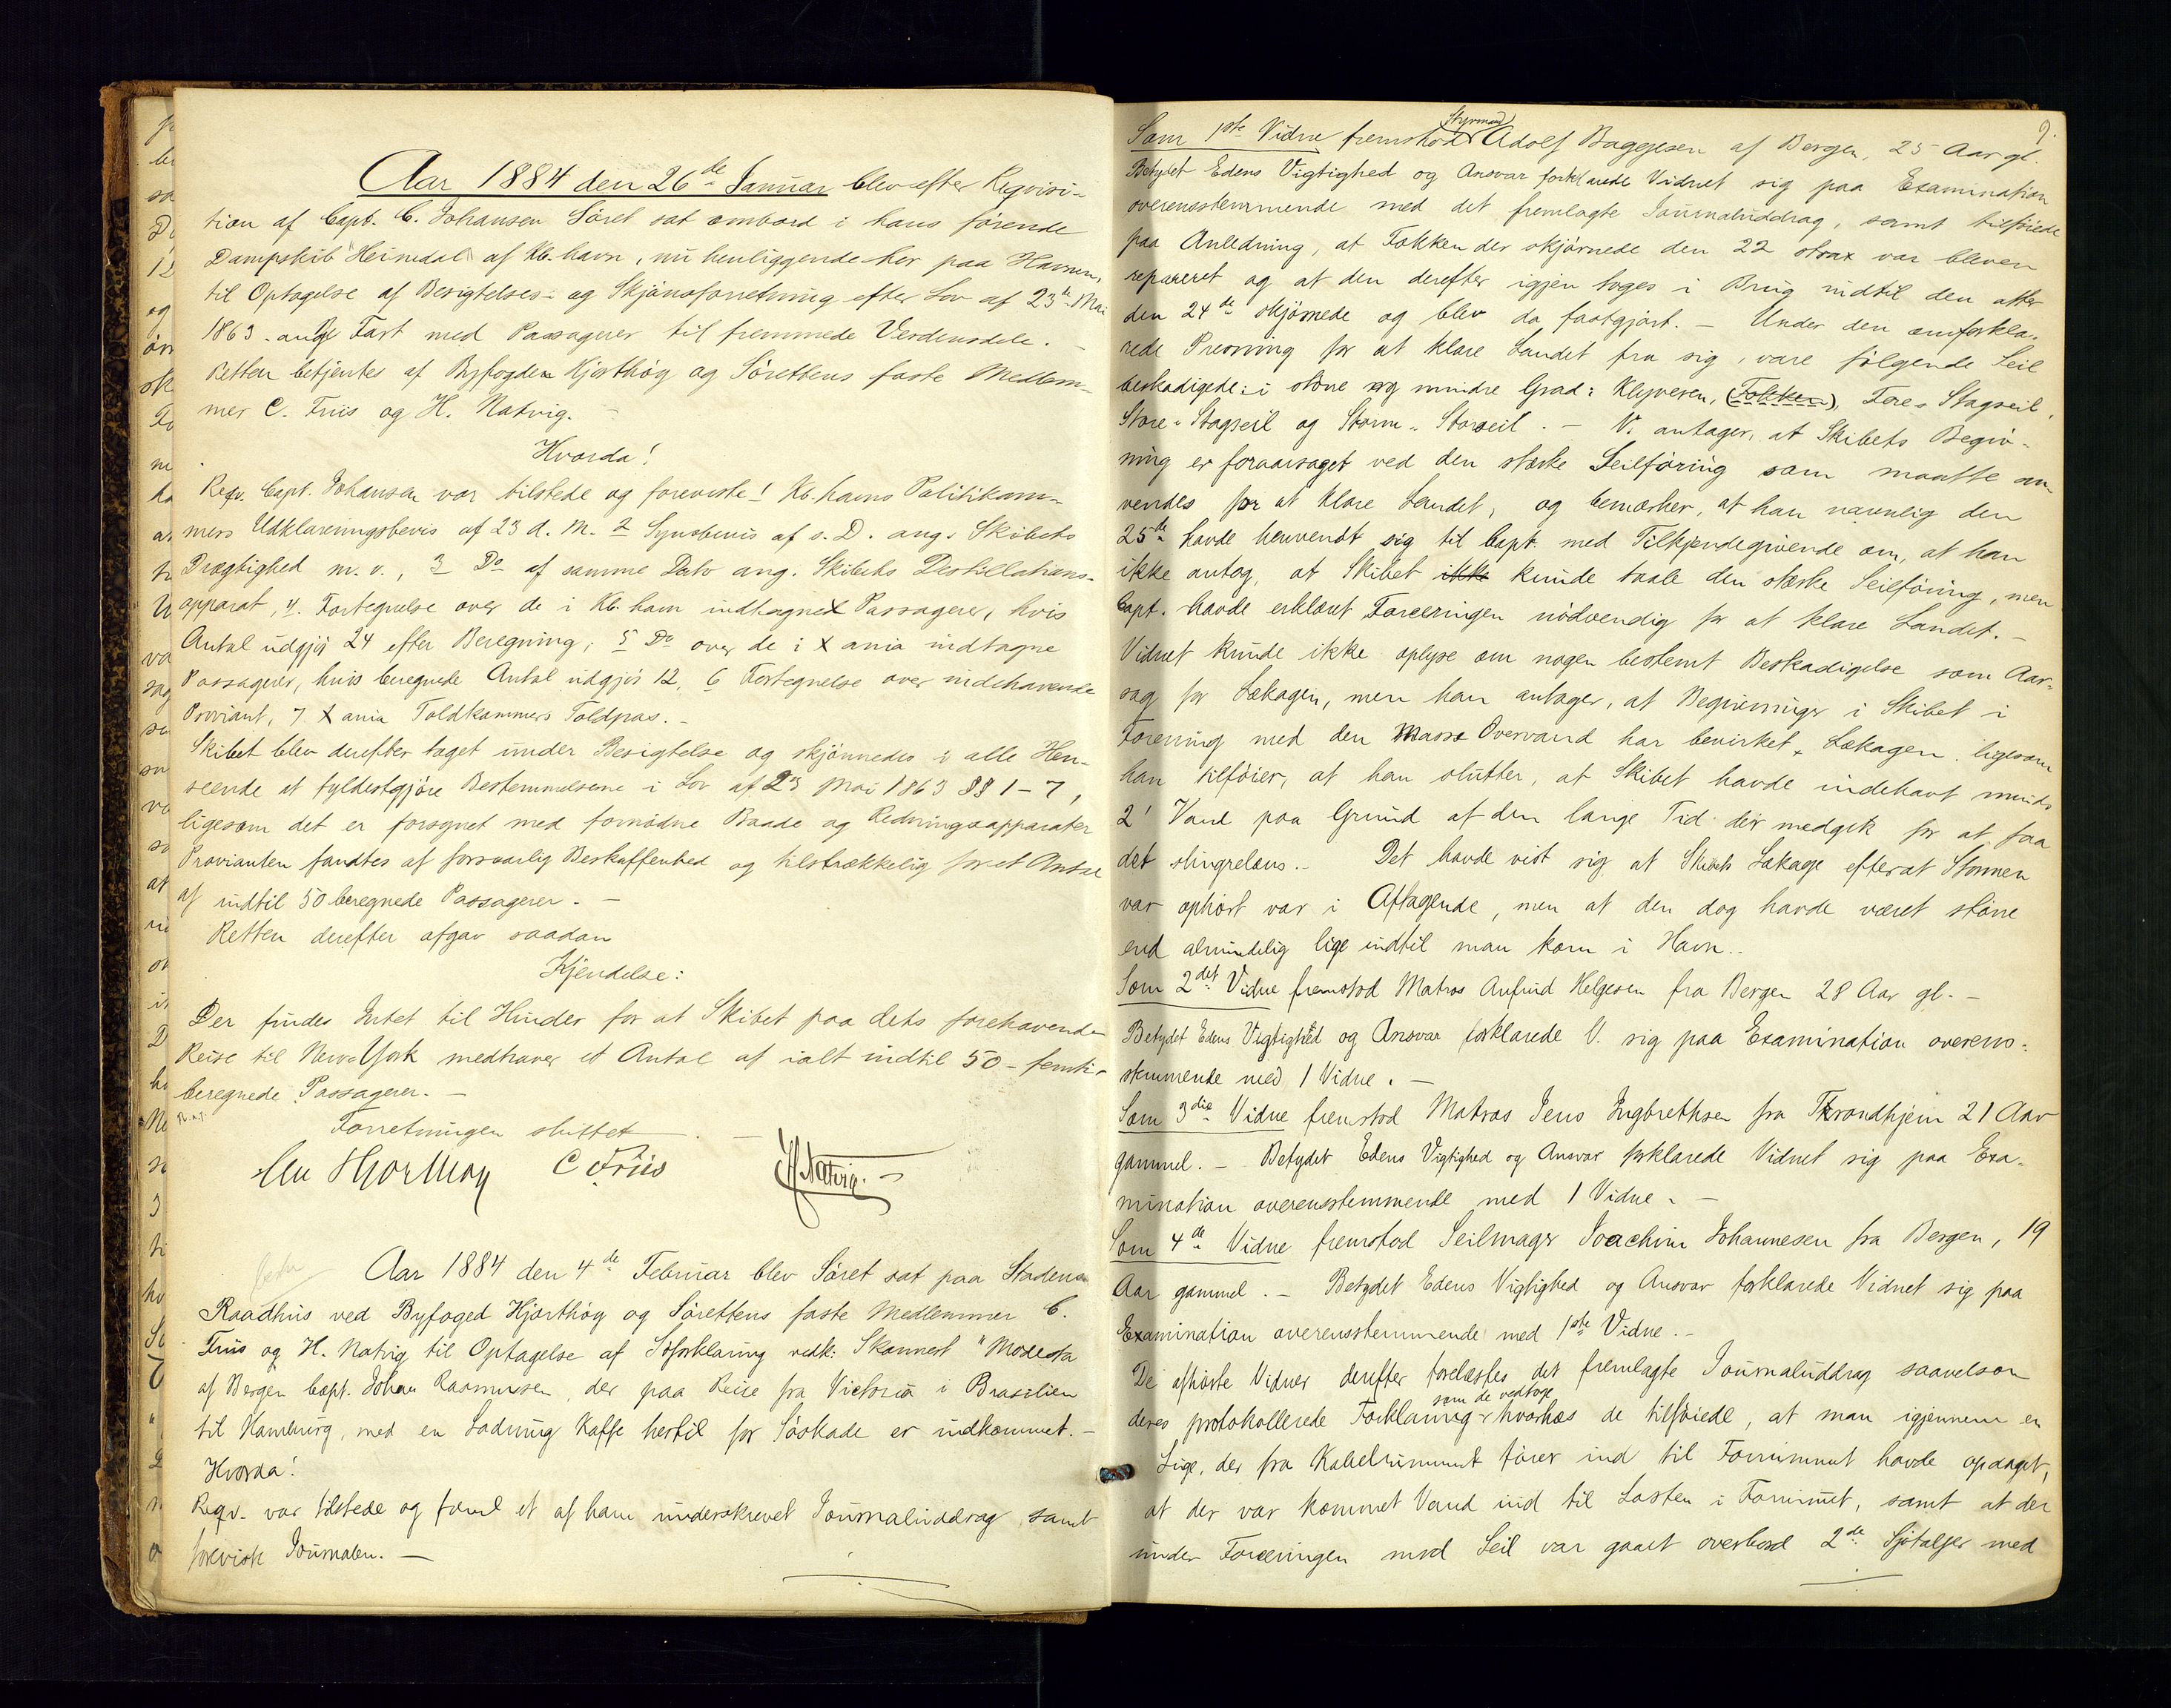 Aar 1884 den 26de Januar blev efter Reqvisi-
tion af Capt. C. Johansen Søret sat ombord i hans førende
Dampskib "Heimdal" af Kb.havn, nu henliggende her paa Havnen,
til Optagelse af Besigtelses- og Skjønsforretning efter Lov af 23de Mai
1863 ang. Fart med Passagerer til fremmede Verdensdele. -
Retten betjentes af Byfogden Hjorthøy og Sørettens faste Medlem-
mer C. Friis og H. Natvig. -
Hvorda!
Reqv. Capt. Johansen var tilstede og foreviste 1 Kb.havns Politikam-
mers Udklareringsbevis af 23 d. M. 2 Synsbevis af s. D. ang. Skibets
Drægtighed m. v., 3 Do af samme Dato ang. Skibets Destillations-
apparat, 4. Fortegnelse over de i Kb.havn indtagne Passagerer, hvis
Antal udgjør 24 efter Beregning; 5 Do over de i Xania indtagne
Passagerer, hvis beregnede Antal udgjør 12, 6 Fortegnelse over indehavende
Proviant, 7 Xania Toldkammers Toldpas. -
Skibet blev derefter taget under Besigtelse og skjønnedes i alle Hen-
seende at fyldestgjøre Bestemmelserne i Lov af 23 Mai 1863 §§ 1-7,
ligesom det er forsynet med fornødne Baade og Redningsapparater
Provianten fandtes af forsvarlig Beskaffenhed og tilstrækkelig for et Antal
af indtil 50 beregnede Passagerer. -
Retten derefter afgav saadan
Kjendelse:
Der findes Intet til Hinder for at Skibet paa dets forehavende
Reise til New-York medhaver et Antal af ialt indtil 50 - femti -
beregnede Passagerer. -
Forretningen sluttet. -
Hjorthøy C Friis H Natvig. -
Aar 1884 den 4de Februar blev Søret sat paa Stadens
Raadhus ved Byfoged Hjorthøy og Sørettens faste Medlemmer C.
Friis og H. Natvig til Optagelse af Søforklaring vedk: Skonnert "Modesta
af Bergen Capt. Johan Rasmussen der paa Reise fra Victoria i Brasilien
til Hamburg, med en Ladning Kaffe hertil for Søskade er indkommet. -
Hvorda!
Reqv. var tilstede og freml et af ham underskrevet Journaluddrag samt
foreviste Journalen. -
9.
Styrmand
Som 1ste Vidne fremstod Adolf Baggesen af Bergen, 25 Aar gl.
Betydet Edens Vigtighed og Ansvar forklarede Vidnet sig paa Examination
overensstemmende med det fremlagte Journaluddrag, samt tilføiede
paa Anledning, at Fokken der skjørnede den 22 strax var bleven
repareret og at den derefter igjen toges i Brug indtil den atter
den 24de skjørnede og blev da fastgjort. - Under den omforkla-
rede Presning for at klare Landet fra sig, vare følgende Seil
beskadigede: i større og mindre Grad: Klyveren, (Fokken), Fore-Stagseil,
Store-Stagseil og Storm-Storseil. - V. antager, at Skibets Begiv-
ning er foraarsaget ved den stærke Seilføring som maatte an-
vendes for at klare Landet, og bemærker, at han navnlig den
25de havde henvendt sig til Capt. med Tilkjendegivende om, at han
ikke antog, at Skibet ikke kunde taale den stærke Seilføring, men
Capt. havde erklæret Forceringen nødvendig for at klare Landet. -
Vidnet kunde ikke oplyse om nogen bestemt Beskadigelse som Aar-
sag for Lækagen, men han antager, at Begivninger i Skibet i
Forening med den Masse Overvand har bevirket Lækagen, ligesom
han tilføier, at han slutter, at Skibet havde indehavt mindst
2' Vand paa Grund af den lange Tid der medgik for at faa
det slingrelæns. - Det havde vist sig at Skibets Lækage efterat Stormen
var ophørt var i Aftagende, men at den dog havde været større
end almindelig lige indtil man kom i Havn. -
Som 2det Vidne fremstod Matros Anfind Helgesen fra Bergen 28 Aar gl. -
Betydet Edens Vigtighed og Ansvar forklarede V. sig paa Examination overens-
stemmende med 1 Vidne. -
Som 3die Vidne fremstod Matros Jens Ingbrethsen fra Throndhjem 21 Aar
gammel. - Betydet Edens Vigtighed og Ansvar forklarede Vidnet sig paa Exa-
mination overensstemmende med 1 Vidne. -
Som 4de Vidne fremstod Seilmager Joachim Johannesen fra Bergen, 19
Aar gammel. - Betydet Edens Vigtighed og Ansvar forklarede Vidnet sig paa
Examination overensstemmende med 1ste Vidne. -
De afhørte Vidner derefter forelæstes det fremlagte Journaluddrag saavelsom
som de vedtoge
deres protokollerede Forklaring hvorhos de tilføiede, at man igjennem en
Lige, der fra Kabelrummet fører ind til Forrummet havde opdaget,
at der var kommet Vand ind til Lasten i Forrumet, samt at der
under Forceringen med Seil var gaaet overbord 2de Sjøtaljer med